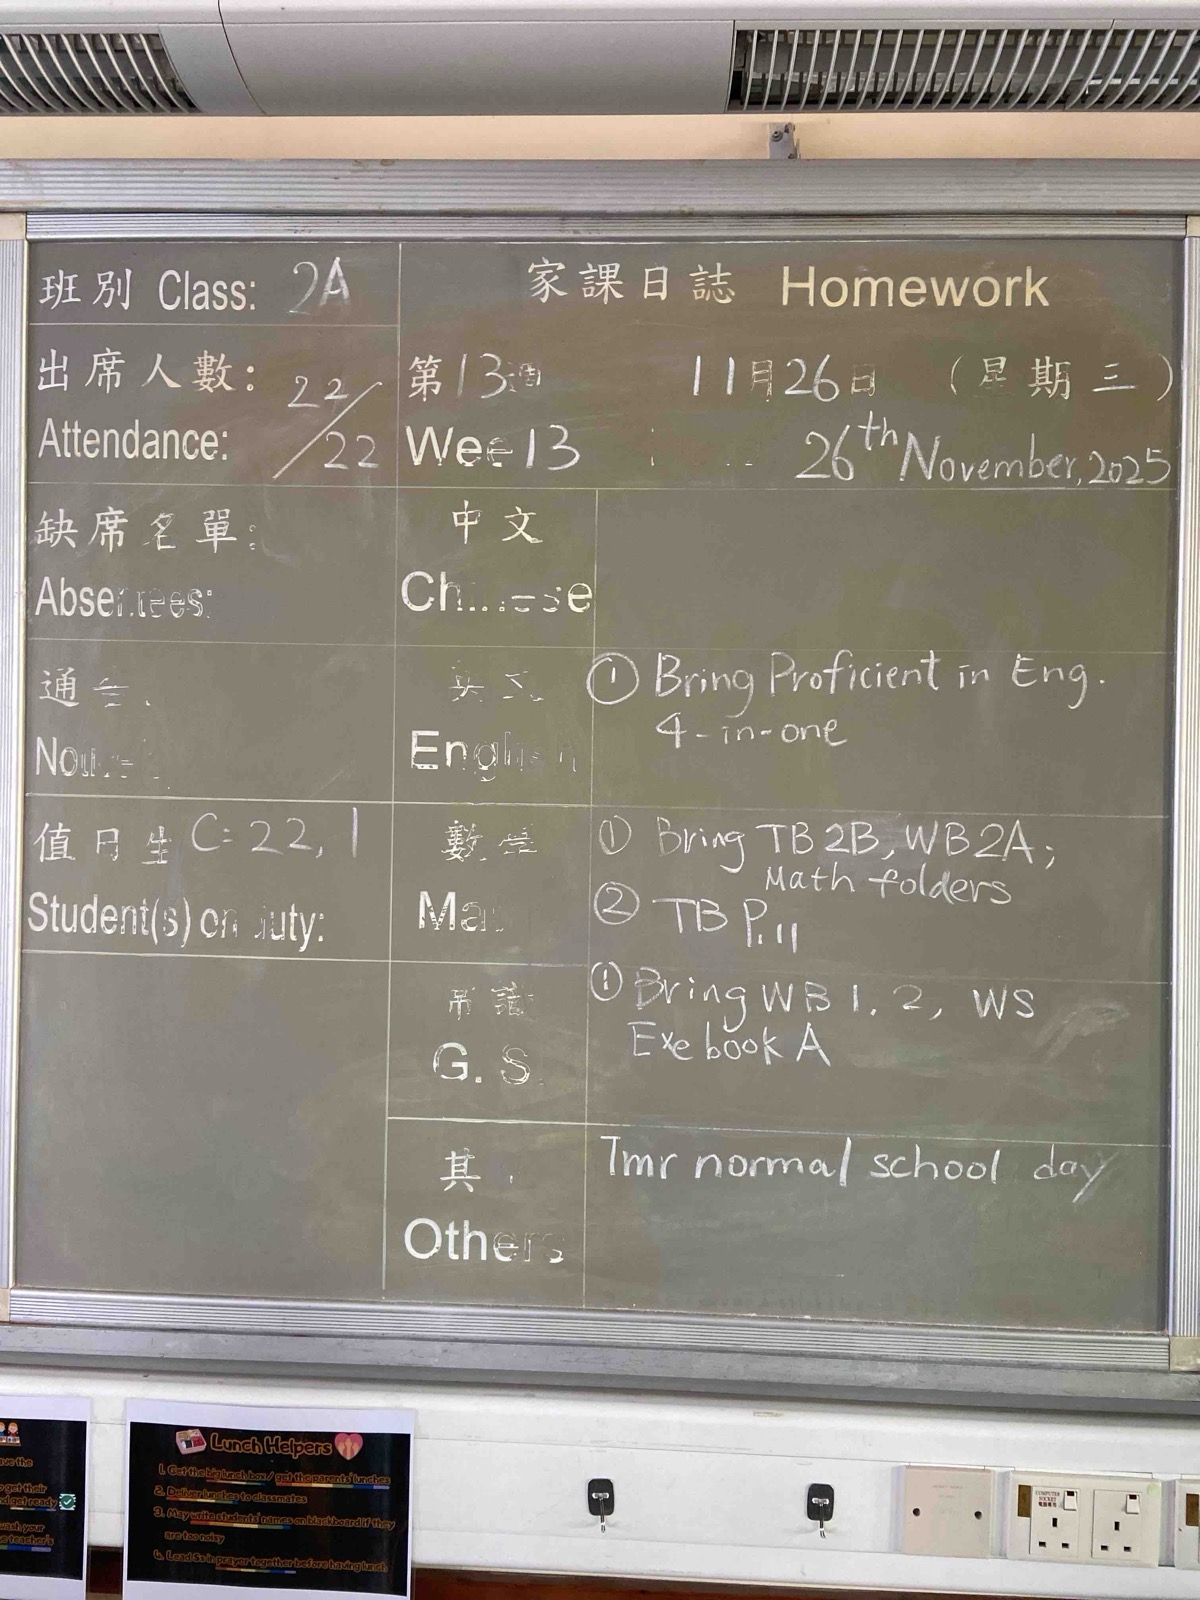 班別 Class: 2A
家課日誌 Homework
出席人數: 22/22
Attendance:
第13週 11月26日 (星期三)
Wee 13 26th November, 2025
缺席名單:
Absentees:
中文
Chinese
通告
英文
English
① Bring Proficient in Eng.
4-in-one
值日生 C: 22, 1
Student(s) on duty:
數學
Ma
① Bring TB 2B, WB2A;
Math folders
② TB P.11
常識
G. S.
① Bring WB 1. 2, WS
Exe book A
其
Others
Tmr normal school day
Lunch Helpers
1. Get the big lunch box / get the parents' lunches
2. Deliver lunches to classmates
3. May write students' names on blackboard if they
are too noisy
4. Lead Ss in prayer together before having lunch
ave the
get their
get ready
wash your
teacher's
COMPUTER
SOCKET
電腦專用